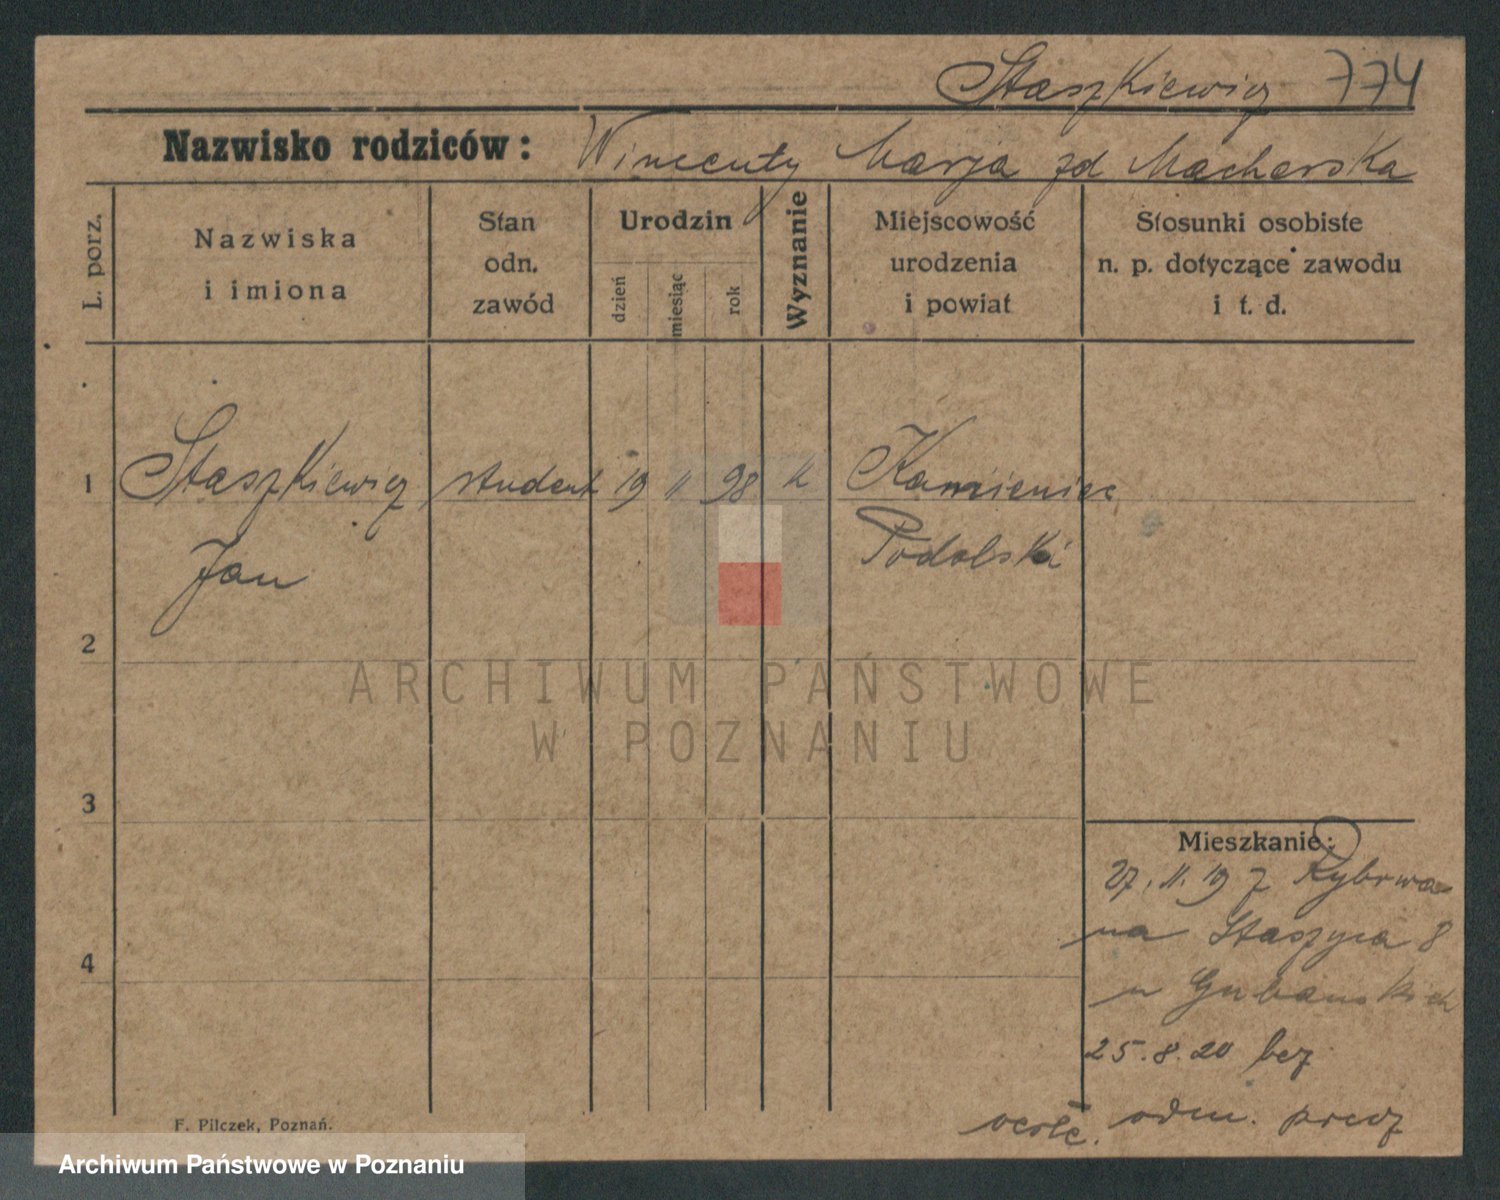 Staszkiewicz 774
Nazwisko rodziców: Wincenty Marja zd Macherska
L. porz.
Nazwiska
i imiona
Stan
odn.
zawód
Urodzin
dzień
miesiąc
rok
Wyznanie
Miejscowość
urodzenia
i powiat
Stosunki osobiste
n. p. dotyczące zawodu
i t. d.
1 Staszkiewicz student 19 11 98 k Kamieniec
Jan Podolski
2
ARCHIWUM PAŃSTWOWE
W POZNANIU
3
Mieszkanie:
27.11.19 z
na Staszyca 8
4
u Gubańskich
25.8.20 bez
odm. przez
F. Pilczek, Poznań.
Archiwum Państwowe w Poznaniu